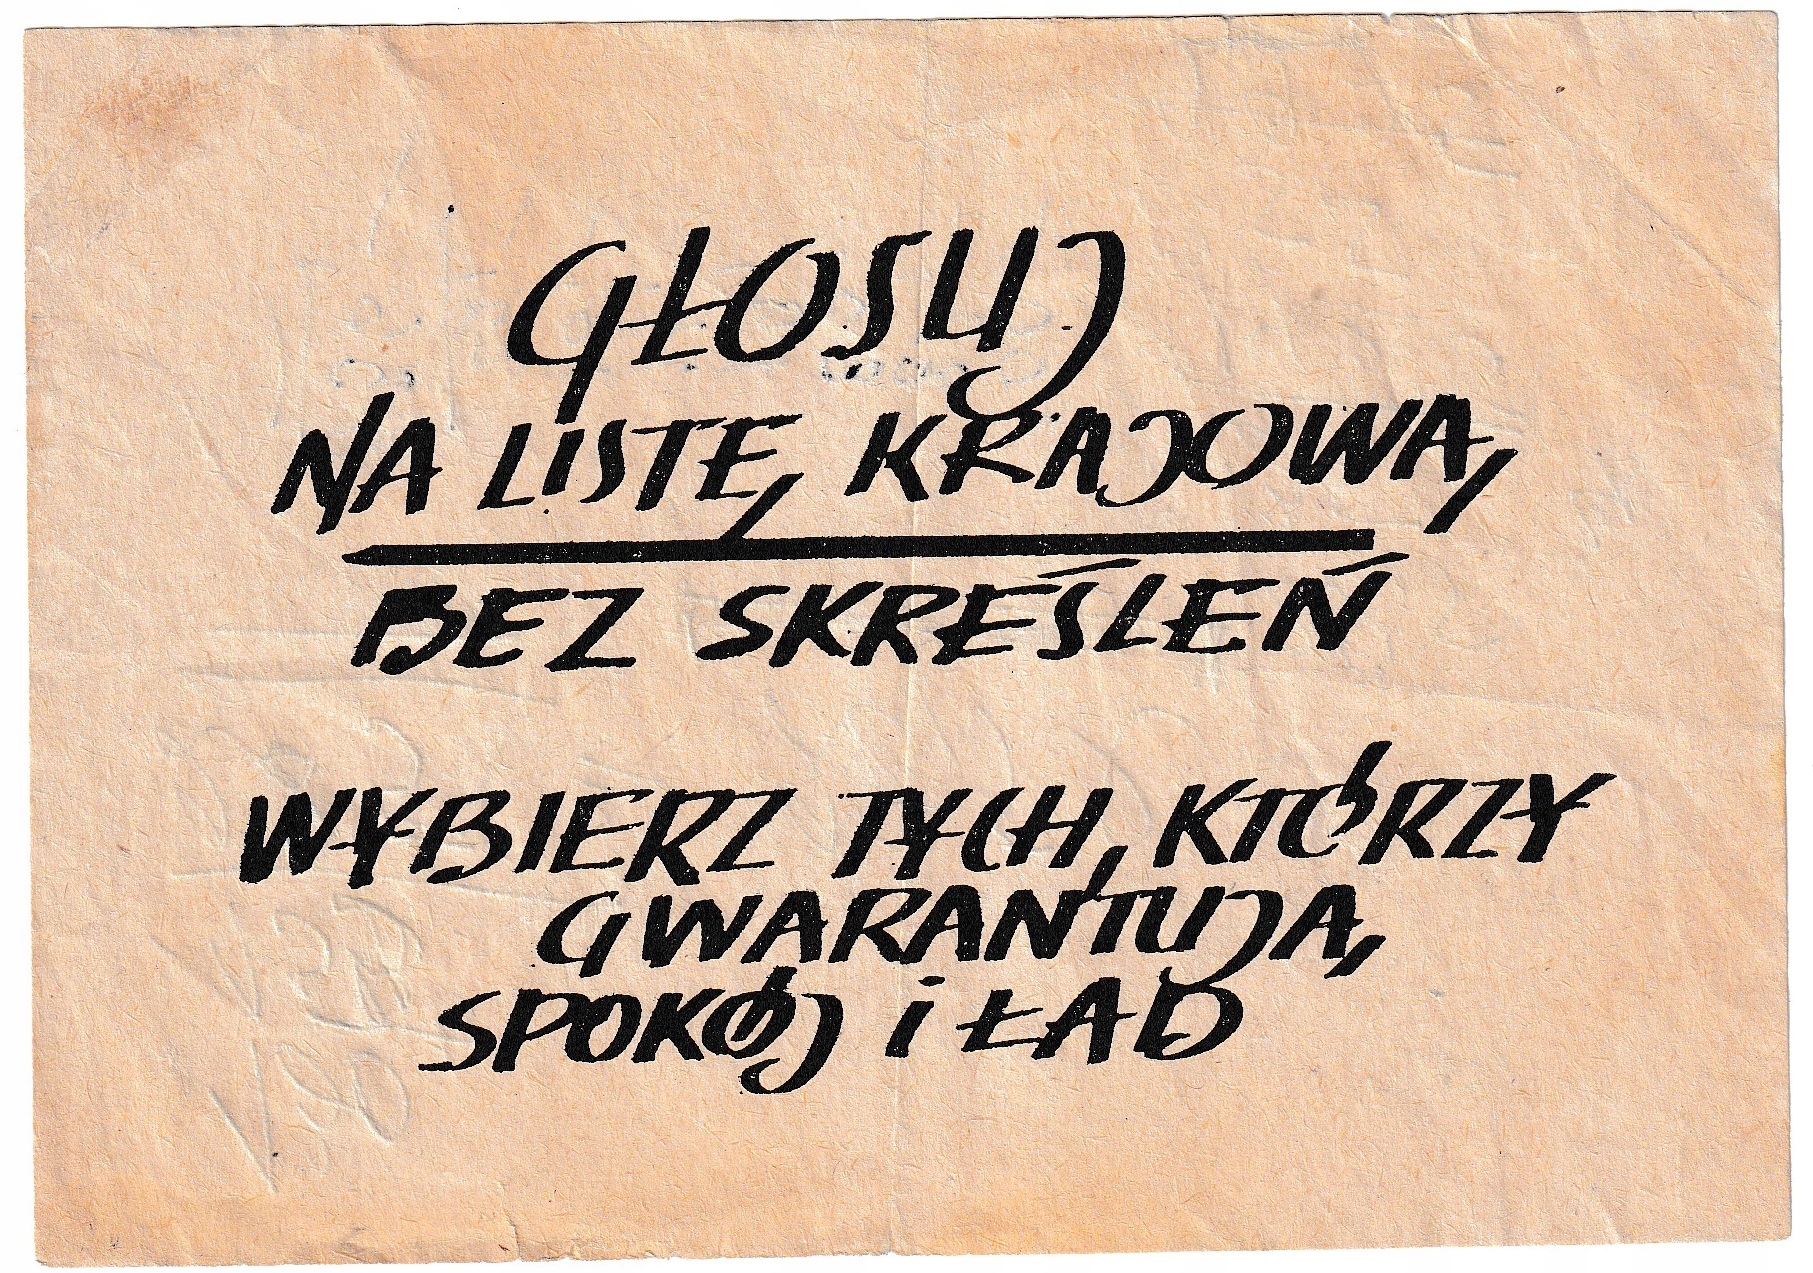 GŁOSUJ
NA LISTĘ KRAJOWĄ
BEZ SKREŚLEŃ
WYBIERZ TYCH, KTÓRZY
GWARANTUJĄ
SPOKÓJ i ŁAD